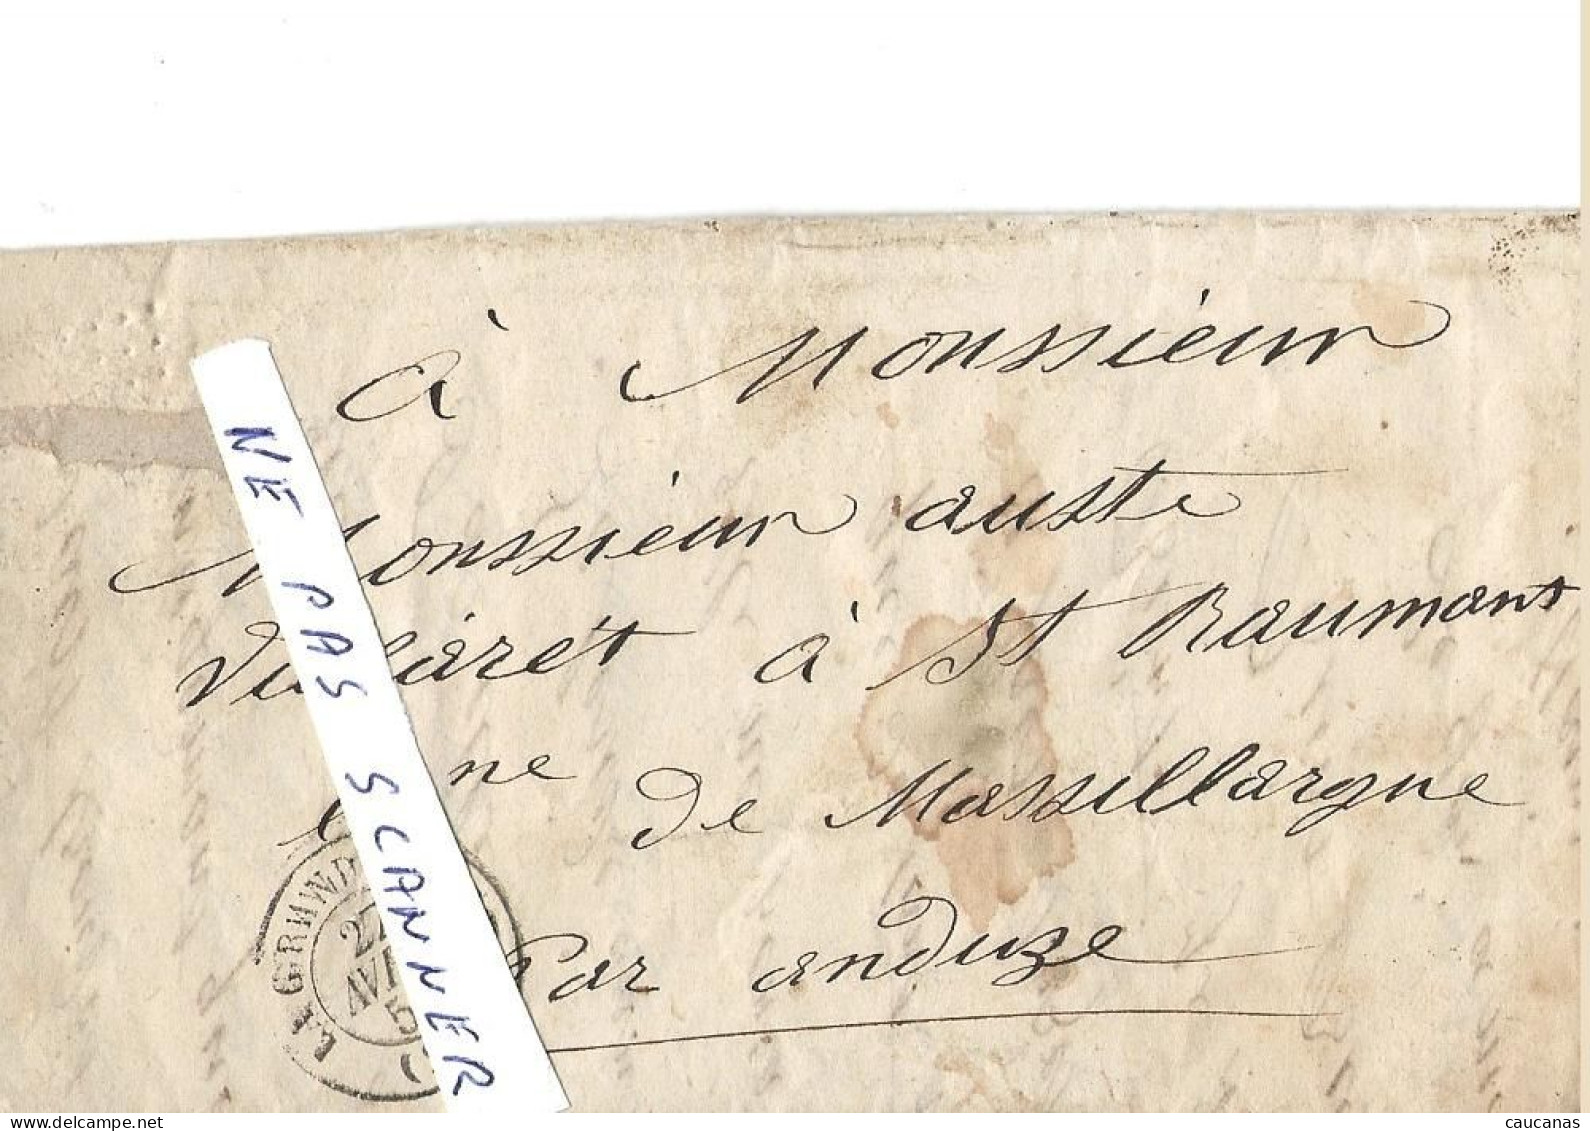 à Monsieur
Monsieur auste
à St Raumans
ne de Massillargue
Par anduze
NE PAS SCANNER
LA GRAND
27
AVR
5
delcampe.net
caucanas